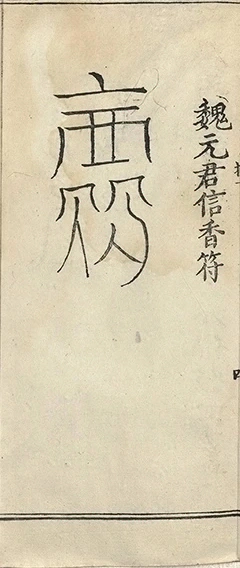 魏元君信香符